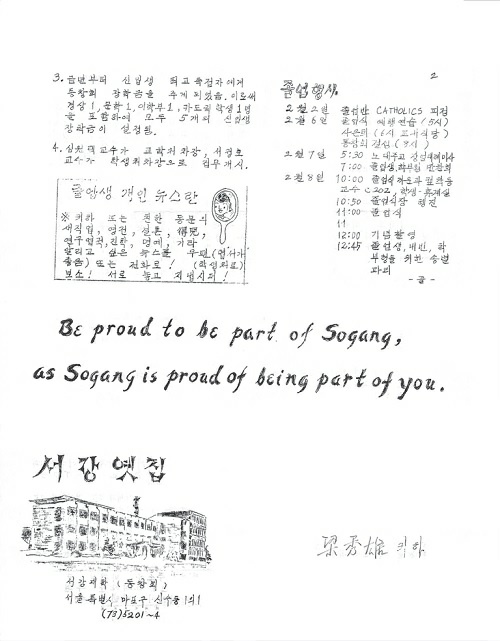 2
3. 금년부터 신입생 최고득점자에게
동창회 장학금을 주게 되었음. 이로써
경상 1, 문학 1, 이학부 1, 가톨릭 학생 1명
을 포함하여 모두 5개의 신입생
장학금이 설정됨.
4. 교수가 교학처장, 서정호
교수가 학생처장으로 집무개시.
졸업생 개인 뉴스란
※ 귀하 또는 친한 동문의
새직업, 영전, 결혼, 得兒,
연구업적, 진학, 명예, 기타
알리고 싶은 뉴스를 우편(엽서가
좋음) 또는 전화로! (학생처로)
보소! 서로 돕고 지냅시다!
졸업행사
2월 2일 졸업반 CATHOLICS 피정
2월 6일 졸업식 예행연습 (5시)
사은회 (6시 교내식당)
2월 7일 5:30
7:00 졸업생, 학부형
2월 8일 10:00
교수 C202, 학생-휴게실
10:50 졸업식장 행진
11:00 졸업식
11
12:00 기념촬영
12:45 졸업생, 내빈, 학
부형을 위한 송별
파티
- 끝 -
Be proud to be part of Sogang,
as Sogang is proud of being part of you.
서강옛집
서강대학 (동창회)
서울특별시 마포구 신수동 1의 1
(73) 5201~4
梁秀雄 귀하